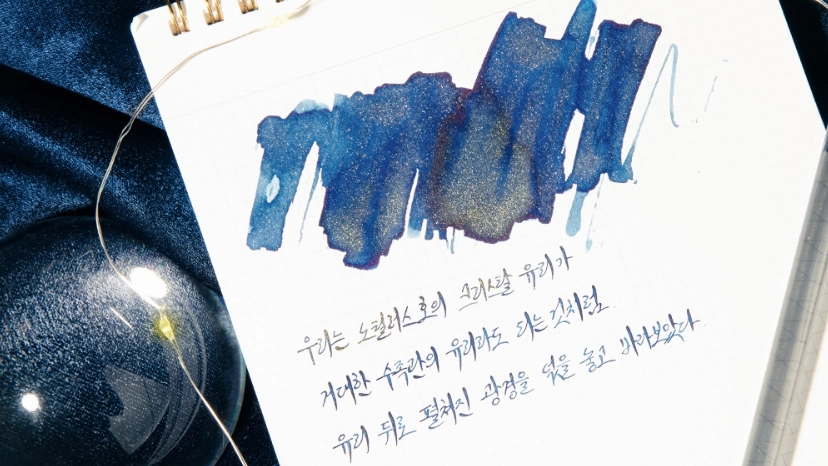 우리는 노틸러스호의 크리스탈 유리가
거대한 수족관의 유리라도 되는 것처럼
유리 뒤로 펼쳐진 광경을 넋을 놓고 바라보았다